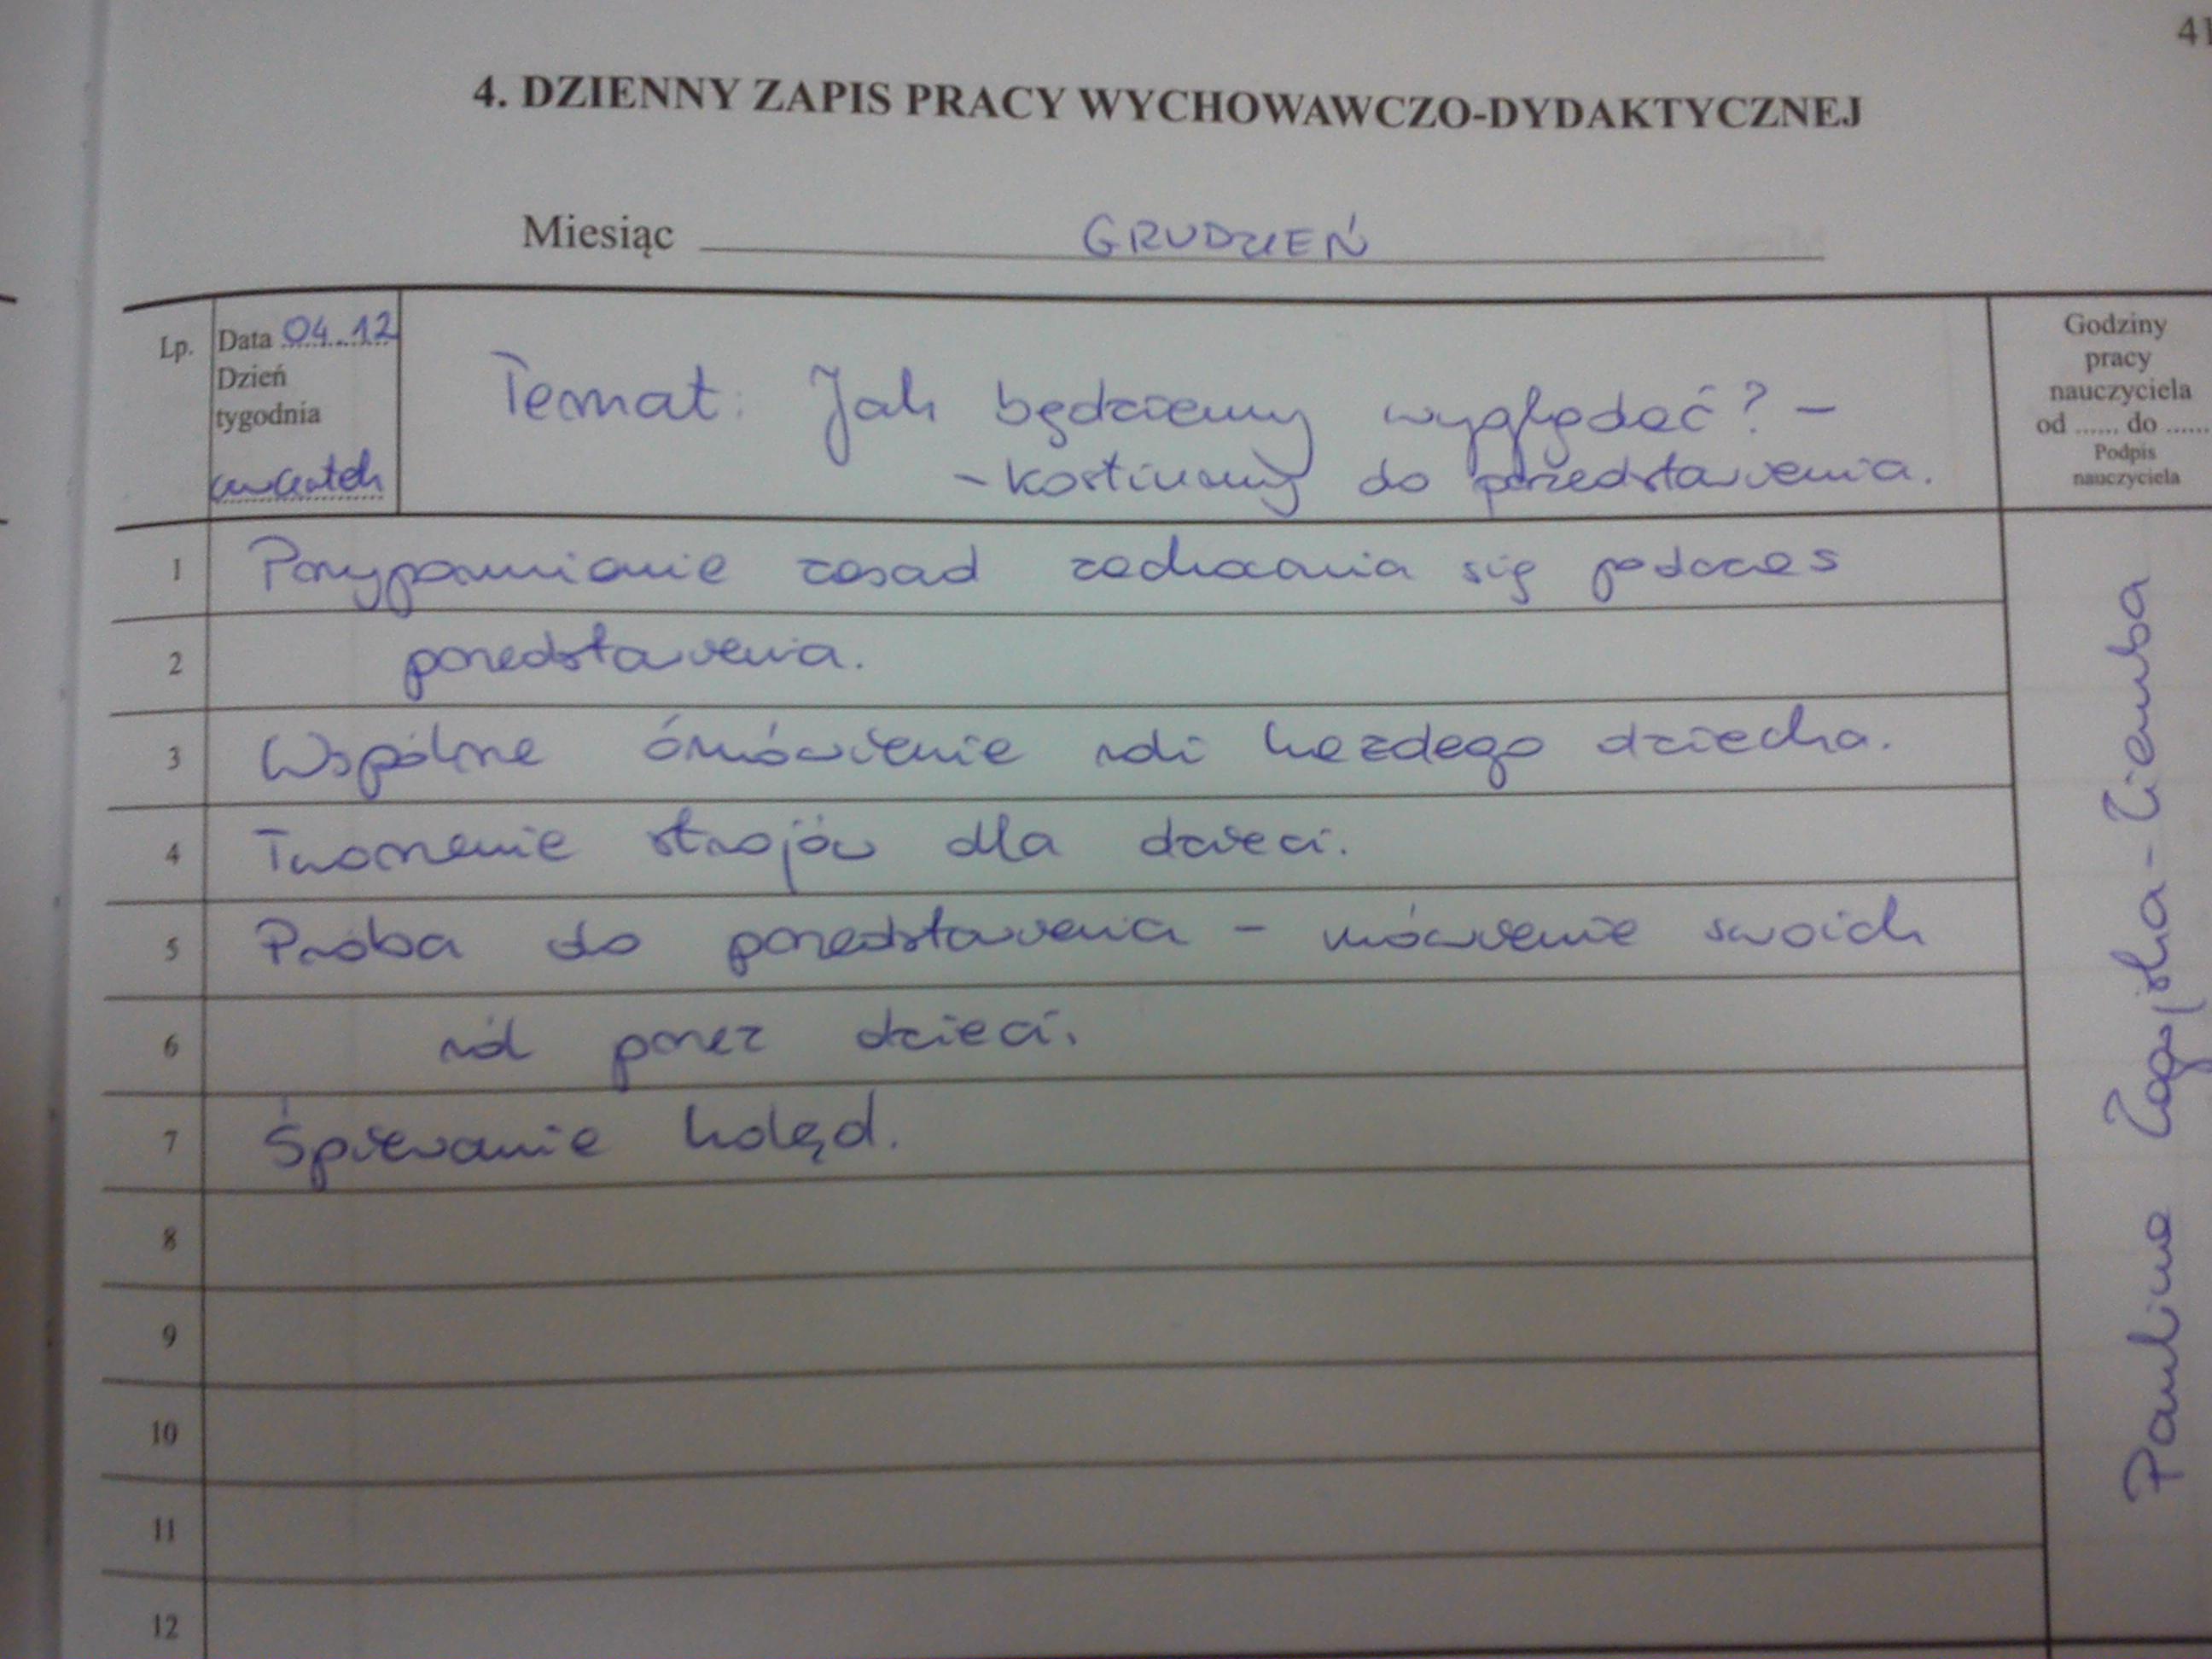 41
4. DZIENNY ZAPIS PRACY WYCHOWAWCZO-DYDAKTYCZNEJ
Miesiąc GRUDZIEŃ
Lp.
Data 04.12
Dzień
tygodnia
czwartek
Temat: Jak będziemy wyglądać? -
- kostiumy do przedstawienia.
Godziny
pracy
nauczyciela
od ...... do ......
Podpis
nauczyciela
1 Przypomnienie zasad zachowania się podczas
2 przedstawienia.
3 Wspólne omówienie roli każdego dziecka.
4 Tworzenie strojów dla dzieci.
5 Próba do przedstawienia - mówienie swoich
6 ról przez dzieci.
7 Śpiewanie kolęd.
8
9
10
11
12
Paulina Zagajska-Ziemba